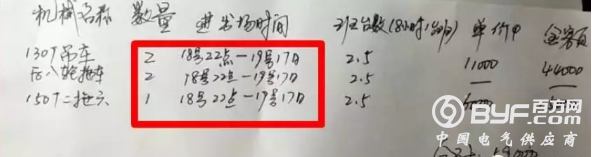 机械名称 数量 进出场时间 班台数(8小时1台班) 单价 金额
130T吊车 2 18号22点—19号17日 2.5 11000 44000
后八轮拖车 2 18号22点—19号17日 2.5
150T二拖六 1 18号22点—19号17日 2.5
BYF.COM 百方网
中国电气供应商